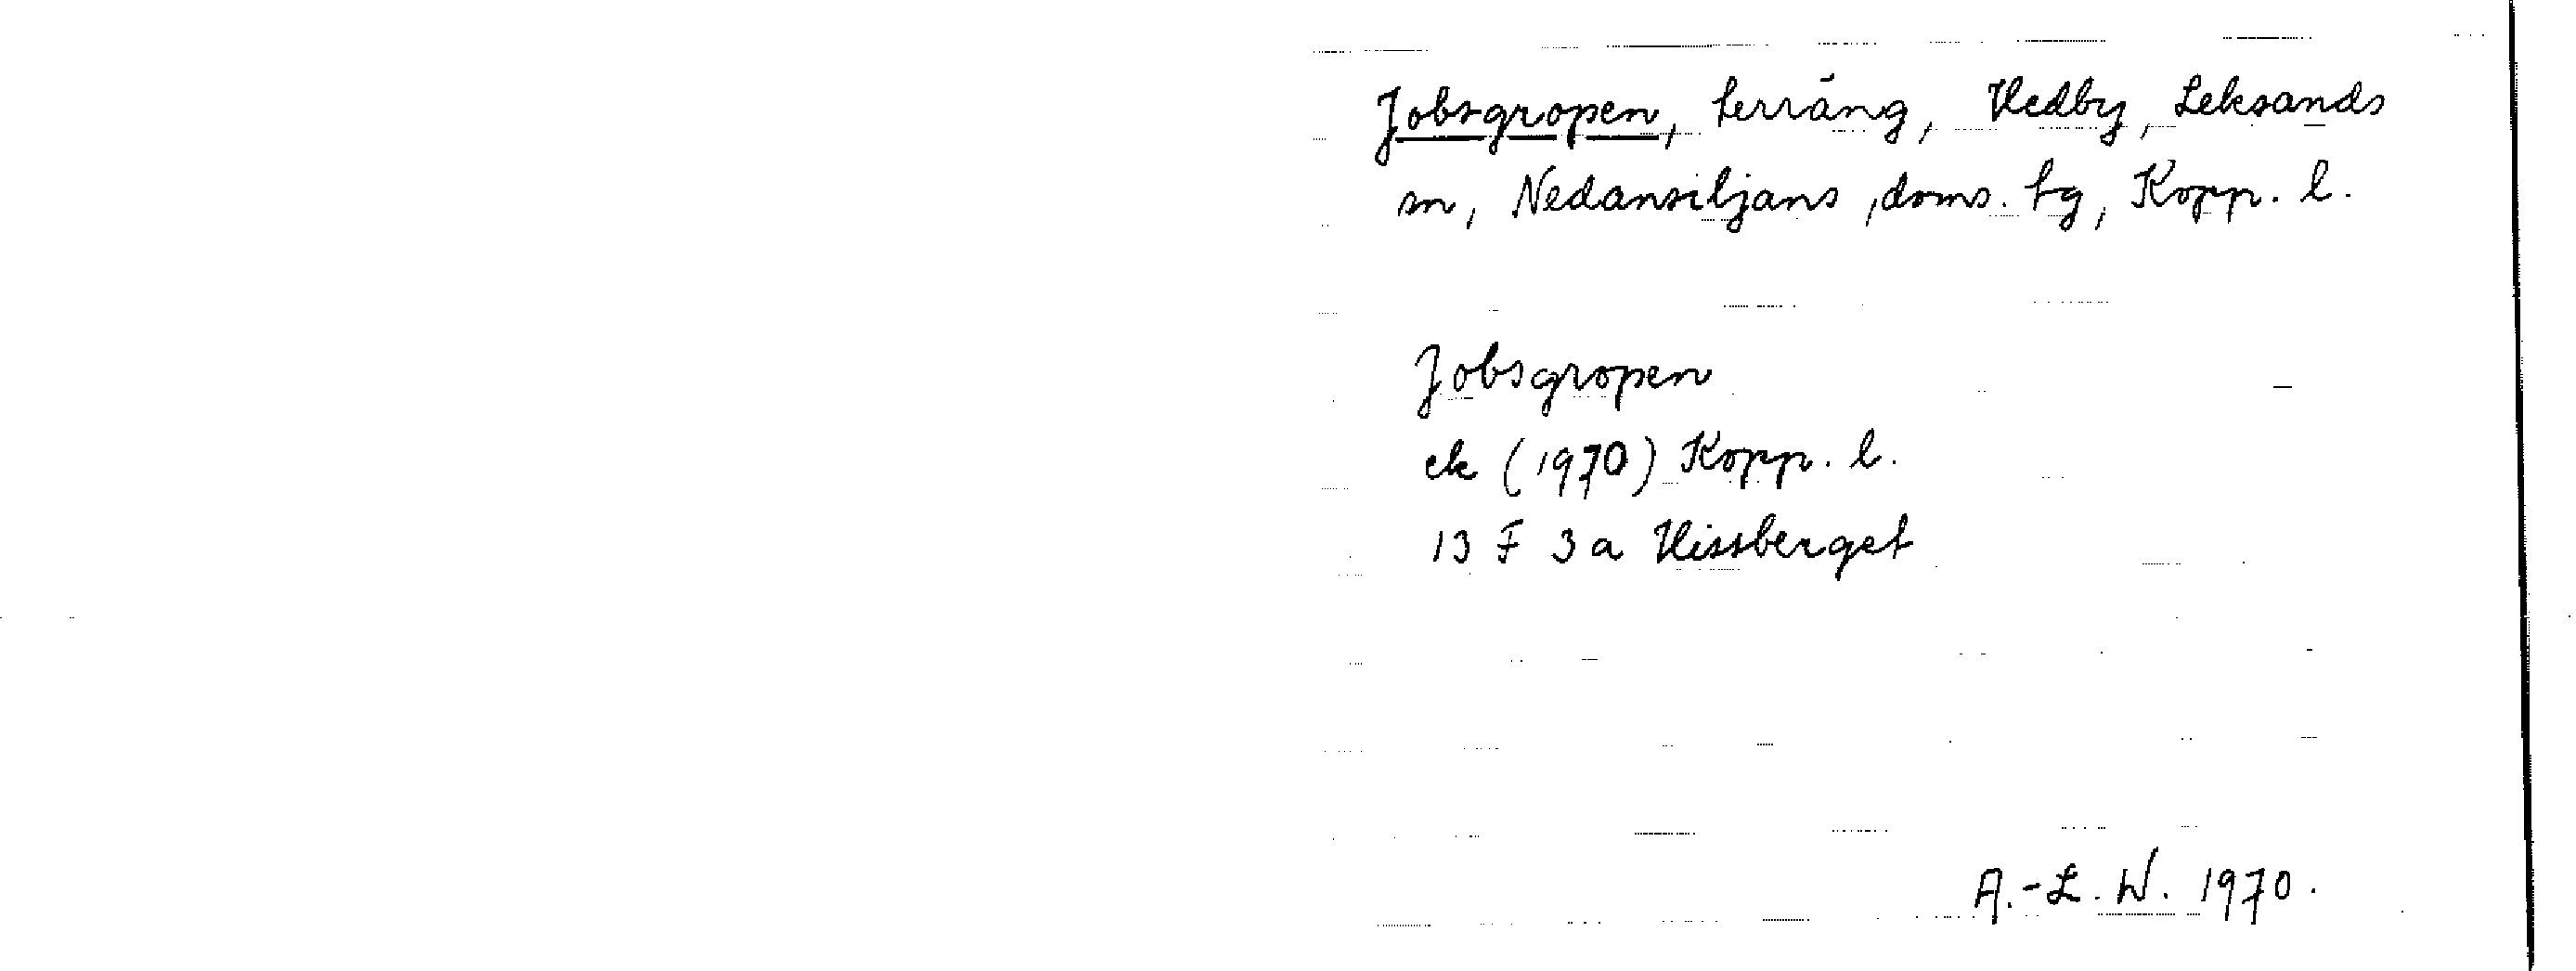 Jobsgropen, terräng, Hedby, Leksands
sn, Nedansiljans doms. tg, Kopp. l.
Jobsgropen
ek (1970) Kopp. l.
13 F 3 a Hissberget
A.-L. W. 1970.